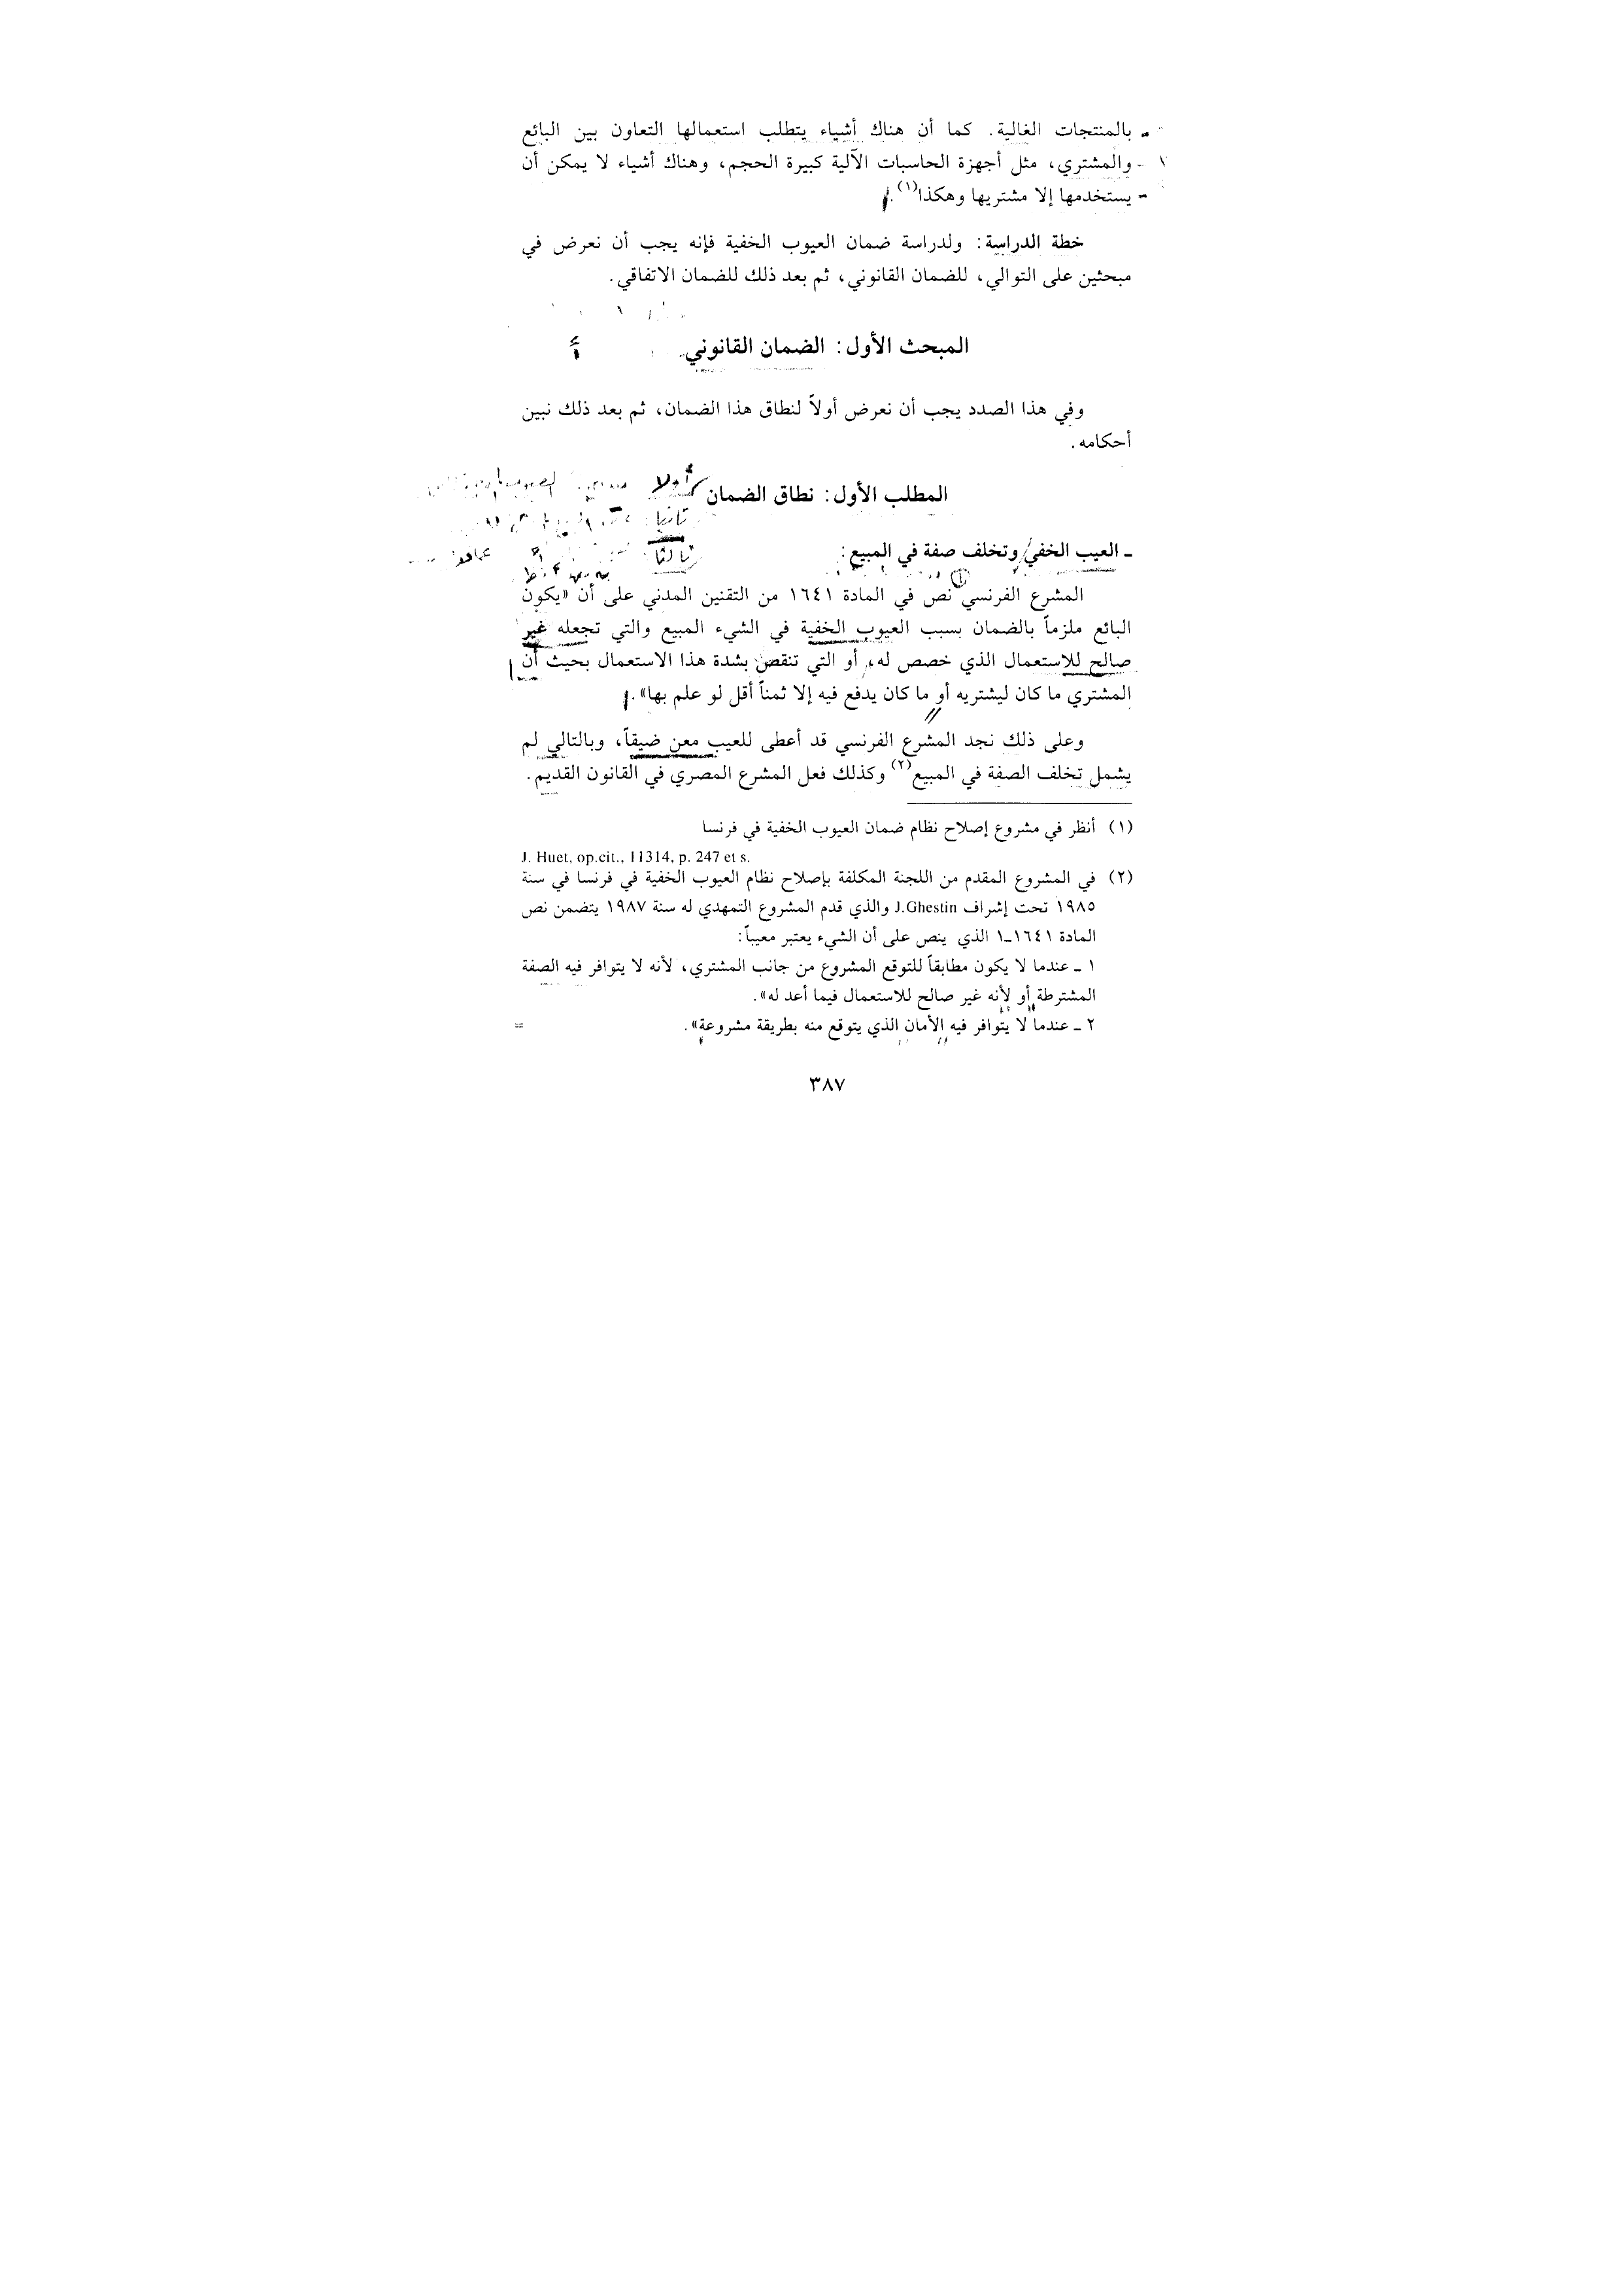 بالمنتجات الغالية. كما أن هناك أشياء يتطلب استعمالها التعاون بين البائع
والمشتري، مثل أجهزة الحاسبات الآلية كبيرة الحجم، وهناك أشياء لا يمكن أن
يستخدمها إلا مشتريها وهكذا(١).
خطة الدراسة: ولدراسة ضمان العيوب الخفية فإنه يجب أن نعرض في
مبحثين على التوالي، للضمان القانوني، ثم بعد ذلك للضمان الاتفاقي.
المبحث الأول: الضمان القانوني
وفي هذا الصدد يجب أن نعرض أولاً لنطاق هذا الضمان، ثم بعد ذلك نبين
أحكامه.
المطلب الأول: نطاق الضمان
أولا
ثانيا
ثالثا
ـ العيب الخفي وتخلف صفة في المبيع:
المشرع الفرنسي نص في المادة ١٦٤١ من التقنين المدني على أن «يكون
البائع ملزماً بالضمان بسبب العيوب الخفية في الشيء المبيع والتي تجعله غير
صالح للاستعمال الذي خصص له، أو التي تنقص بشدة هذا الاستعمال بحيث أن
المشتري ما كان ليشتريه أو ما كان يدفع فيه إلا ثمناً أقل لو علم بها».
وعلى ذلك نجد المشرع الفرنسي قد أعطى للعيب معن ضيقاً، وبالتالي لم
يشمل تخلف الصفة في المبيع(٢) وكذلك فعل المشرع المصري في القانون القديم.
(١) أنظر في مشروع إصلاح نظام ضمان العيوب الخفية في فرنسا
J. Huet, op.cit., 11314, p. 247 et s.
(٢) في المشروع المقدم من اللجنة المكلفة بإصلاح نظام العيوب الخفية في فرنسا في سنة
١٩٨٥ تحت إشراف J.Ghestin والذي قدم المشروع التمهدي له سنة ١٩٨٧ يتضمن نص
المادة ١٦٤١ـ١ الذي ينص على أن الشيء يعتبر معيباً:
١ ـ عندما لا يكون مطابقاً للتوقع المشروع من جانب المشتري، لأنه لا يتوافر فيه الصفة
المشترطة أو لأنه غير صالح للاستعمال فيما أعد له».
٢ ـ عندما لا يتوافر فيه الأمان الذي يتوقع منه بطريقة مشروعة». =
٣٨٧